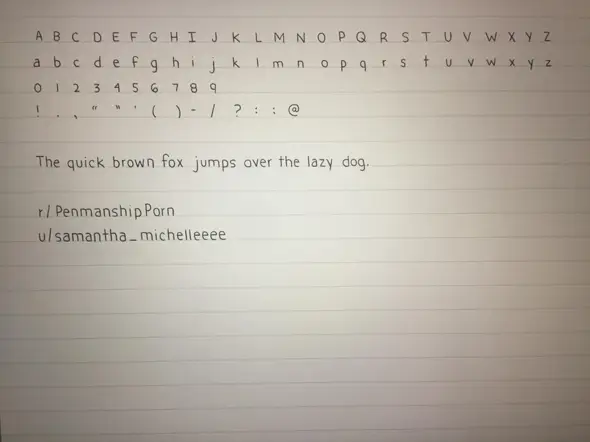 A B C D E F G H I J K L M N O P Q R S T U V W X Y Z
a b c d e f g h i j k l m n o p q r s t u v w x y z
0 1 2 3 4 5 6 7 8 9
! . , " " ' ( ) - / ? : ; @
The quick brown fox jumps over the lazy dog.
r/PenmanshipPorn
u/samantha_michelleeee